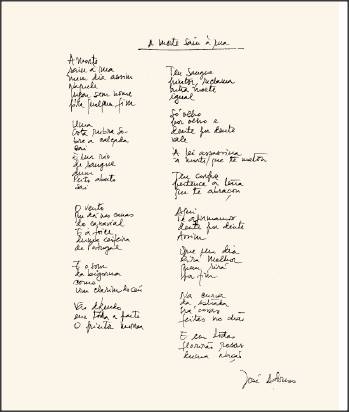 A morte saiu à rua
A morte
saiu à rua
num dia assim
Naquele
lugar sem nome
p'ra qualquer fim
Uma
Gota rubra so
bre a calçada
cai
E um rio
de sangue
dum
Peito aberto
sai
O vento
Que dá nas canas
do canavial
E a foice
duma ceifeira
de Portugal
E o som
da bigorna
como
Um clarim do céu
Vão dizendo
em toda a parte
O pintor morreu
Teu sangue
pintor, reclama
outra morte
igual
Só olho
por olho e
dente por dente
vale
À lei assassina
à morte que te matou
Teu corpo
pertence à terra
que te abraçou
Aqui
te afirmamos
dente por dente
Assim
Que um dia
rirá melhor
quem rirá
por fim
Na curva
da estrada
há covas
feitas no chão
E em todas
florirão rosas
duma nação
José Afonso